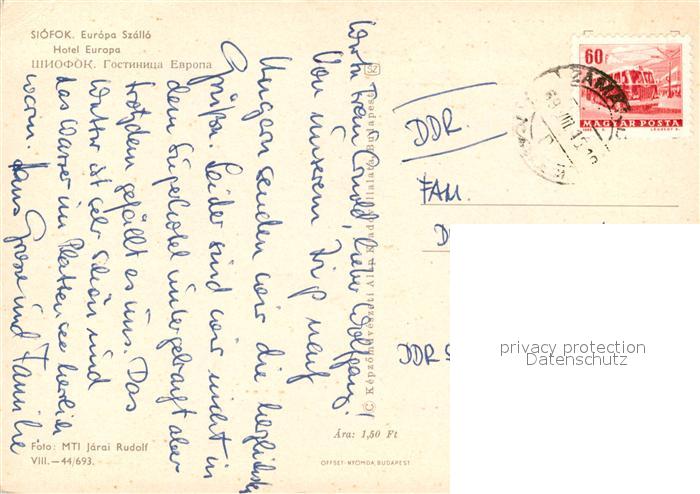 SIÓFOK. Európa Szálló
Hotel Europa
ШИОФОК. Гостиница Европа
Werte Frau Arnold, lieber Wolfgang!
Von unserem Trip nach
Ungarn senden wir die herzlichsten
Grüße. Leider sind wir nicht in
dem Superhotel untergebracht aber
trotzdem gefällt es uns. Das
Wetter ist sehr schön und
das Wasser im Plattensee herrlich
warm. Hans Grosse und Familie
Foto: MTI Járai Rudolf
VIII.—44/693.
© Képzőművészeti Alap Kiadóvállalata, Budapest
SZ
Ára: 1,50 Ft
OFFSET-NYOMDA, BUDAPEST
60f
MAGYAR POSTA
DDR.
FAM.
DDR
privacy protection
Datenschutz